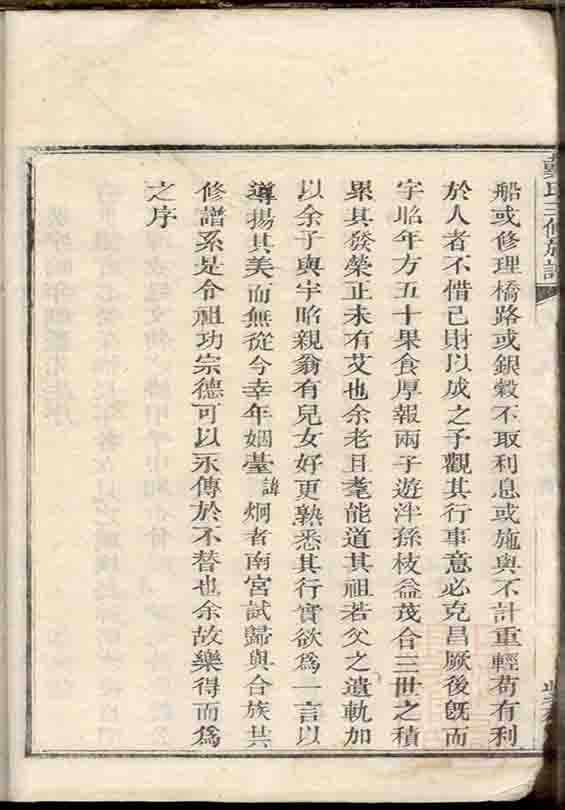 船或修理橋路或銀穀不取利息或施與不計重輕苟有利
於人者不惜己財以成之予觀其行事意必克昌厥後旣而
宇昭年方五十果食厚報兩子遊泮孫枝益茂合三世之積
累其發榮正未有艾也余老且耄能道其祖若父之遺軌加
以余子與宇昭親翁有兒女好更熟悉其行實欲爲一言以
導揚其美而無從今幸年姻臺諱炯者南宮試歸與合族共
修譜系是令祖功宗德可以永傳於不替也余故樂得而爲
之序